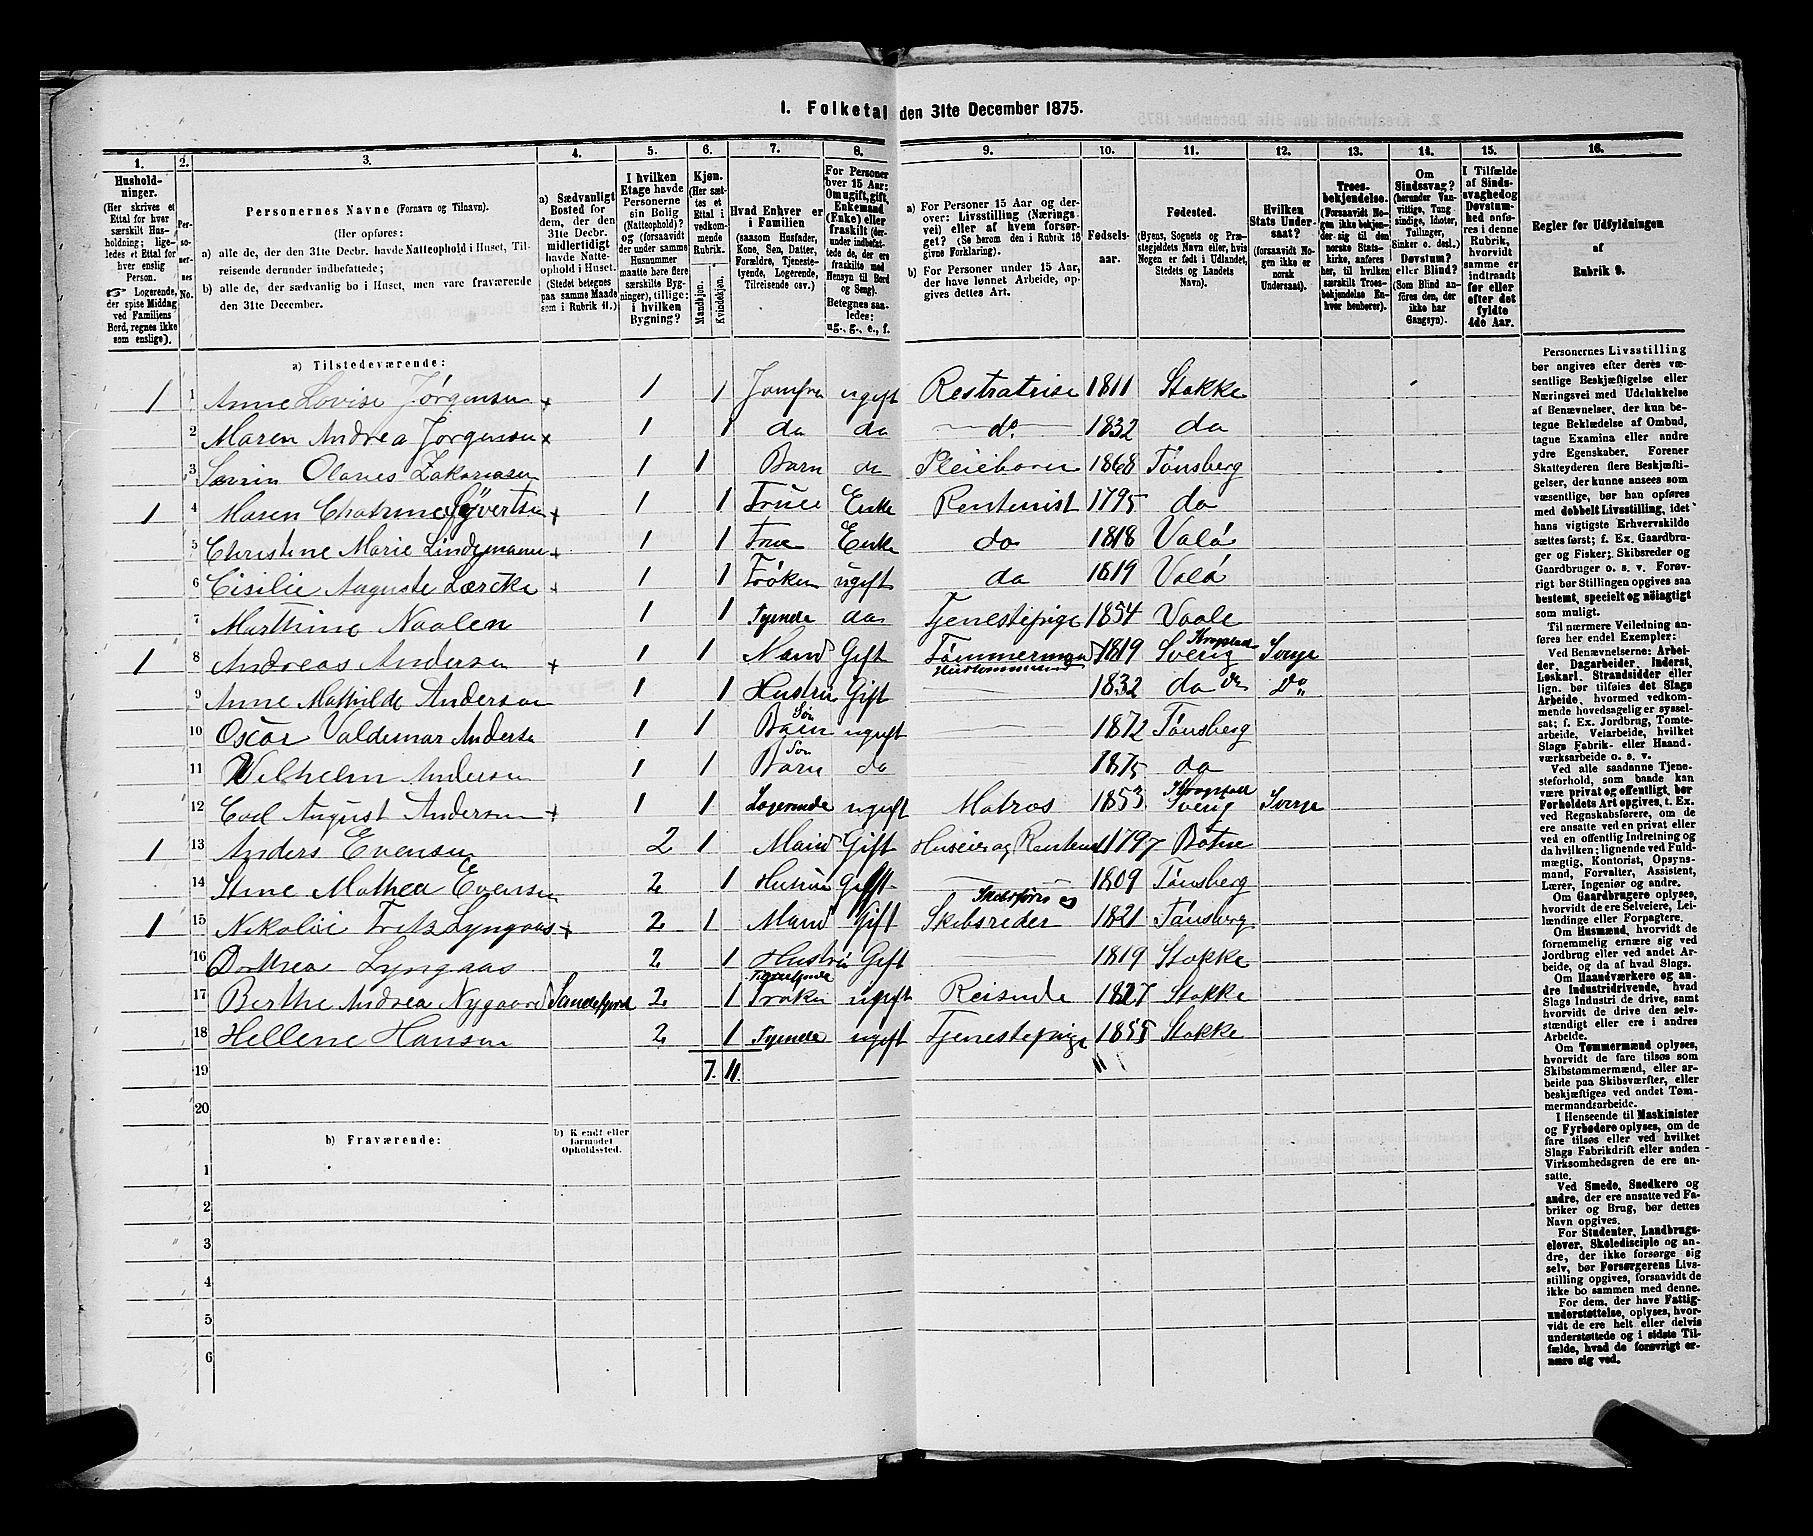 1. Folketal den 31te December 1875.
1. 2. 3. 4. 5. 6. 7. 8. 9. 10. 11. 12. 13. 14. 15. 16.
Hushold-
ninger.
(Her skrives et
Ettal for hver
særskilt Hus-
holdning; lige-
ledes et Ettal for
hver enslig
Person.
☞ Logerende,
der spise Middag
ved Familiens
Bord, regnes ikke
som enslige).
Per-
so-
ner-
nes
No.
Personernes Navne (Fornavn og Tilnavn).
(Her opføres:
a) alle de, der den 31te Decbr. havde Natteophold i Huset, Til-
reisende derunder indbefattede;
b) alle de, der sædvanlig bo i Huset, men vare fraværende
den 31te December.
a) Sædvanligt
Bosted for
dem, der den
31te Decbr.
midlertidigt
havde Natte-
ophold i Huset.
(Stedet betegnes
paa samme Maade
som i Rubrik 11.)
I hvilken
Etage havde
Personerne
sin Bolig
(Natteophold)?
og (forsaavidt
der under samme
Husnummer
maatte høre flere
særskilte Byg-
ninger), tillige:
i hvilken
Bygning?
Kjøn.
(Her sæt-
tes et
Ettal i
vedkom-
mende
Rubrik.
Mandkjøn.
Kvindekjøn.
Hvad Enhver er
i Familien
(saasom Husfader,
Kone, Søn, Datter,
Forældre, Tjeneste-
tyende, Logerende,
Tilreisende osv.)
For Personer
over 15 Aar:
Om ugift, gift,
Enkemand
(Enke) eller
fraskilt (der-
under indbefat-
tede de, der ere
fraskilte med
Hensyn til Bord
og Seng).
Betegnes saa-
ledes:
ug., g., e., f.
a) For Personer 15 Aar og der-
over: Livsstilling (Nærings
vei) eller af hvem forsør-
get? (Se herom den i Rubrik 16
givne Forklaring).
b) For Personer under 15 Aar,
der have lønnet Arbeide, op-
gives dettes Art.
Fødsels-
aar.
Fødested.
(Byens, Sognets og Præ-
stegjeldets Navn eller, hvis
Nogen er født i Udlandet,
Stedets og Landets
Navn).
Hvilken
Stats Under-
saat?
(forsaavidt No-
gen ikke er
norsk
Undersaat).
Troes-
bekjendelse.
(Forsaavidt No-
gen ikke bekjen-
der sig til den
norske Stats-
kirke, anføres
her, til hvilken
særskilt Troes-
bekjendelse En-
hver henhører).
Om
Sindssvag?
(herunder Van-
vittige, Tung
sindige, Idioter,
Tullinger,
Sinker o. desl.)
Døvstum?
eller Blind?
(Som Blind an-
føres den, der
ikke har
Gangsyn).
I Tilfælde
af Sinds-
svaghed og
Døvstum-
hed onfø-
res i denne
Rubrik,
hvorvidt
samme er
indtraadt
før eller
efter det
fyldte
4de Aar.
Regler for Udfyldningen
af
Rubrik 9.
a) Tilstedeværende:
1 1 Anne Lovise Jørgensen + 1 1 Jomfru ugift Restratrise 1811 Stokke
2 Maren Andrea Jørgensen + 1 1 do do do 1832 do
3 Sevrin Olaves Zakariasen 1 1 Barn do Pleiebarn 1868 Tønsberg
1 4 Maren Chatrine Syvertsen + 1 1 Frue Enke Rentenist 1795 do
5 Christine Marie Lindemann + 1 1 Frue Enke do 1818 Valø
6 Cisilie Auguste Lærcke + 1 1 Frøken ugift do 1819 Valø
7 Marthine Naalen 1 1 Tyende do Tjenestepige 1854 Vaale
1 8 Andreas Andersen + 1 1 Mand Gift Tømmermand Hustømmermand 1819 Sverig Sverge
9 Anne Mathilde Andersen 1 1 Hustru Gift 1832 do do Do
10 Oscar Valdemar Anderse 1 1 Barn Søn ugift 1872 Tønsberg
11 Vilhelm Andersen 1 1 Barn Søn do 1875 do
12 Carl August Andersen + 1 1 Logerende ugift Matros 1853 Sverig Sverge
1 13 Anders Evensen 2 1 Mand Gift Huseier og Rentenist 1797 Botne
14 Stine Mathea Evensen 2 1 Hustru Gift 1809 Tønsberg
1 15 Nikolai Fritz Lyngaas + 2 1 Mand Gift Skibsfører og Skibsreder 1821 Tønsberg
16 Dorthea Lyngaas 2 1 Hustru Gift 1819 Stokke
17 Berthe Andrea Nygaard Sandefjord 2 1 Tilreisende Frøken ugift Reisende 1827 Stokke
18 Hellene Hansen 2 1 Tyende ugift Tjenestepige 1855 Stokke
19 7. 11.
20
b) Fraværende:
b) Kjendt eller
formodet
Opholdssted.
1
2
3
4
5
6
Personernes Livsstilling
bør angives efter deres væ-
sentlige Beskjæftigelse eller
Næringsvei med Udelukkelse
af Benævnelser, der kun be-
tegne Beklædelse af Ombud,
tagne Examina eller andre
ydre Egenskaber. Forener
Skatteyderen flere Beskjæfti-
gelser, der kunne ansees som
væsentlige, bør han opføres
med dobbelt Livsstilling, idet
hans vigtigste Erhvervskilde
sættes først; f. Ex. Gaardbru-
ger og Fisker; Skibsreder og
Gaardbruger o. s. v. Forøv-
rigt bør Stillingen opgives saa
bestemt, specielt og nøiagtigt
som muligt.
Til nærmere Veiledning an-
føres her endel Exempler:
Ved Benævnelserne: Arbei-
der, Dagarbeider, Inderst,
Løskarl, Strandsidder eller
lign. bør tilføies det Slags
Arbeide, hvormed vedkom-
mende hovedsagelig er syssel-
sat; f. Ex. Jordbrug, Tomte-
arbeide, Veiarbeide, hvilket
Slags Fabrik- eller Haand-
værksarbeide o. s. v.
Ved alle saadanne Tjene-
steforhold, som baade kan
være privat og offentligt, bør
Forholdets Art opgives, t. Ex.
ved Regnskabsførere, om de
ere ansatte ved en privat eller
ved en offentlig Indretning og
da hvilken; lignende ved Fuld-
mægtig, Kontorist, Opsyns-
mand, Forvalter, Assistent,
Lærer, Ingeniør og andre.
Om Gaardbrugere oplyses,
hvorvidt de ere Selveiere, Lei-
lændinge eller Forpagtere.
Om Husmænd, hvorvidt de
fornemmelig ernære sig ved
Jordbrug eller ved andet Ar-
beide, og da af hvad Slags.
Om Haandværkere og an-
dre Industridrivende, hvad
Slags Industri de drive, samt
hvorvidt de drive den selv-
stændigt eller ere i andres
Arbeide.
Om Tømmermænd oplyses,
hvorvidt de fare tilsøs som
Skibstømmermænd, eller ar-
beide paa Skibsværfter, eller
beskjæftiges ved andet Tøm-
mermandsarbeide.
I Henseende til Maskinister
og Fyrbødere oplyses, om de
fare tilsøs eller ved hvilket
Slags Fabrikdrift eller anden
Virksomhedsgren de ere an-
satte.
Ved Smede, Snedkere og
andre, der ere ansatte ved Fa-
briker og Brug, bør dettes
Navn opgives.
For Studenter, Landbrugs-
elever, Skoledisciple og an-
dre, der ikke forsørge sig
selv, bør Forsørgerens Livs-
stilling opgives, forsaavidt de
ikke bo sammen med denne.
For dem, der have Fattig-
understøttelse, oplyses, hvor-
vidt de ere helt eller delvis
understøttede og i sidste Til-
fælde, hvad de forøvrigt er-
nære sig ved.